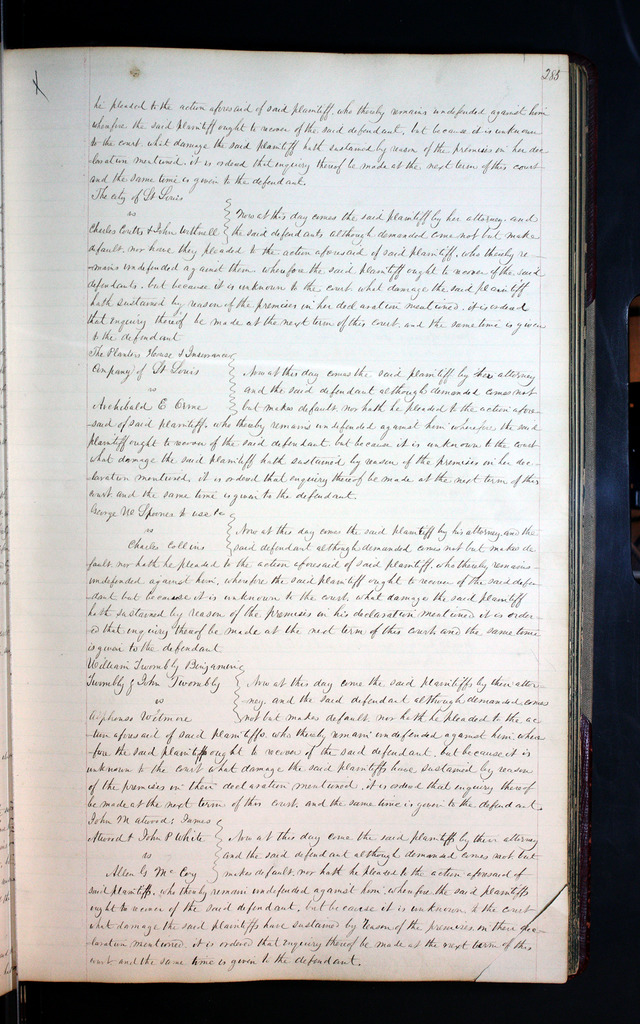 285
he pleaded to the action aforesaid of said plaintiff. who thereby remains undefended against him
wherefore the said plaintiff ought to recover of the said defendant, but because it is unknown
to the court what damage the said plaintiff hath sustained by reason of the premises in her dec
laration mentioned, it is ordered that enquiry thereof be made at the next term of this court
and the same time is given to the defendant.
The city of St Louis
vs
Charles Coutts & John Withnell
Now at this day comes the said plaintiff by her attorney. and
the said defendants although demanded come not but make
default. nor have they pleaded to the action aforesaid of said plaintiff. who thereby re-
mains undefended against them wherefore the said plaintiff ought to recover of the said
defendants. but because it is unknown to the court what damage the said plaintiff
hath sustained by reason of the premises in her declaration mentioned. it is ordered
that enquiry thereof be made at the next term of this court. and the same time is given
to the defendant
The Planters House & Insurance
Company of St Louis
vs
Archibald E Orme
Now at this day comes the said plaintiff by her attorney
and the said defendant although demanded comes not
but makes default. nor hath he pleaded to the action afore
said of said plaintiff. who thereby remains undefended against him wherefore the said
plaintiff ought to recover of the said defendant but because it is unknown to the court
what damage the said plaintiff hath sustained by reason of the premises in her dec-
laration mentioned, it is ordered that enquiry thereof be made at the next term of this
court and the same time is given to the defendant.
George W Spooner to use &c
vs
Charles Collins
Now at this day comes the said plaintiff by his attorney and the
said defendant although demanded comes not but makes de
fault. nor hath he pleaded to the action aforesaid of said plaintiff. who thereby remains
undefended against him, wherefore the said plaintiff ought to recover of the said defen-
dant but because it is unknown to the court. what damage the said plaintiff
hath sustained by reason of the premises in his declaration mentioned it is order
ed that enquiry thereof be made at the next term of this court and the same time
is given to the defendant
William Twombly Benjamin
Twombly & John Twombly
vs
Alphonso Wetmore
Now at this day come the said plaintiffs by their attor-
ney. and the said defendant although demanded comes
not but makes default. nor hath he pleaded to the ac-
tion aforesaid of said plaintiffs. who thereby remain undefended against him where
fore the said plaintiffs ought to recover of the said defendant. but because it is
unknown to the court what damage the said plaintiffs have sustained by reason
of the premises in their declaration mentioned. it is ordered that enquiry thereof
be made at the next term of this court, and the same time is given to the defendant.
John M Atwood, James
Atwood & John P White
vs
Allen G McCoy
Now at this day come the said plaintiffs by their attorney
and the said defendant although demanded comes not but
makes default. nor hath he pleaded to the action aforesaid of
said plaintiffs. who thereby remain undefended against him. wherefore the said plaintiffs
ought to recover of the said defendant, but because it is unknown to the court
what damage the said plaintiffs have sustained by reason of the premises in there dec-
laration mentioned. it is ordered that enquiry thereof be made at the next term of this
court and the same time is given to the defendant.